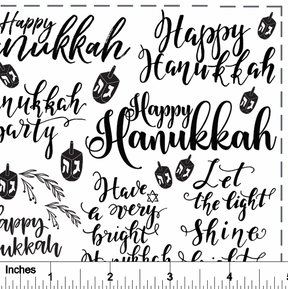 Happy
Hanukkah
Happy
Hanukkah
Hanukkah
party
Happy
Hanukkah
Have
a very
bright
Hanukkah
Let
the light
shine
Happy
Hanukkah
Inches
1
2
3
4
5